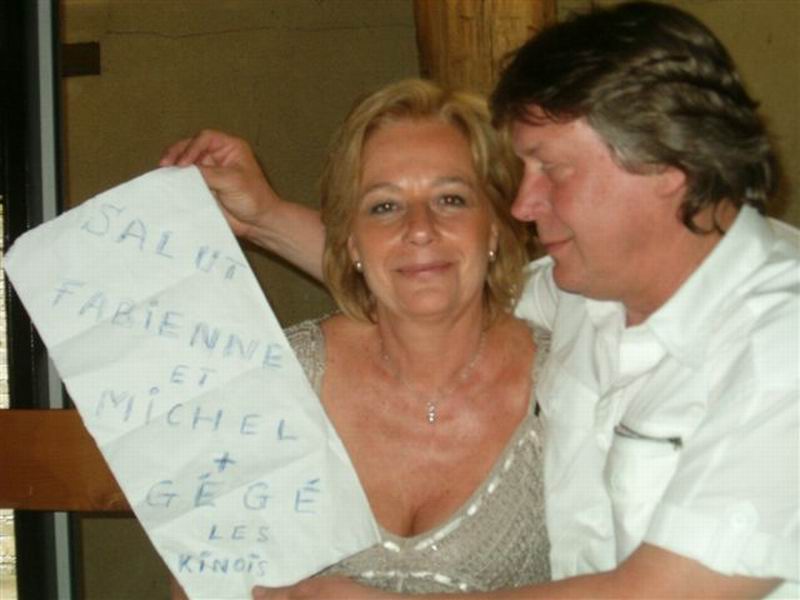 SALUT
FABIENNE
ET
MICHEL
+
GÉGÉ
LES
KINOIS